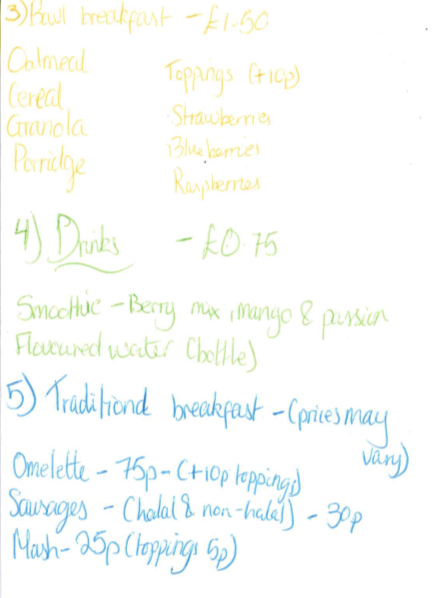 3) Bowl breakfast - £1.50
Oatmeal
Toppings (+10p)
Cereal
Strawberries
Granola
Blueberries
Porridge
Raspberries
4) Drinks - £0.75
Smoothie - Berry mix, mango & passion
Flavoured water (bottle)
5) Traditional breakfast - (prices may
vary)
Omelette - 75p - (+10p toppings)
Sausages - (halal & non-halal) - 30p
Mash - 25p (toppings 5p)